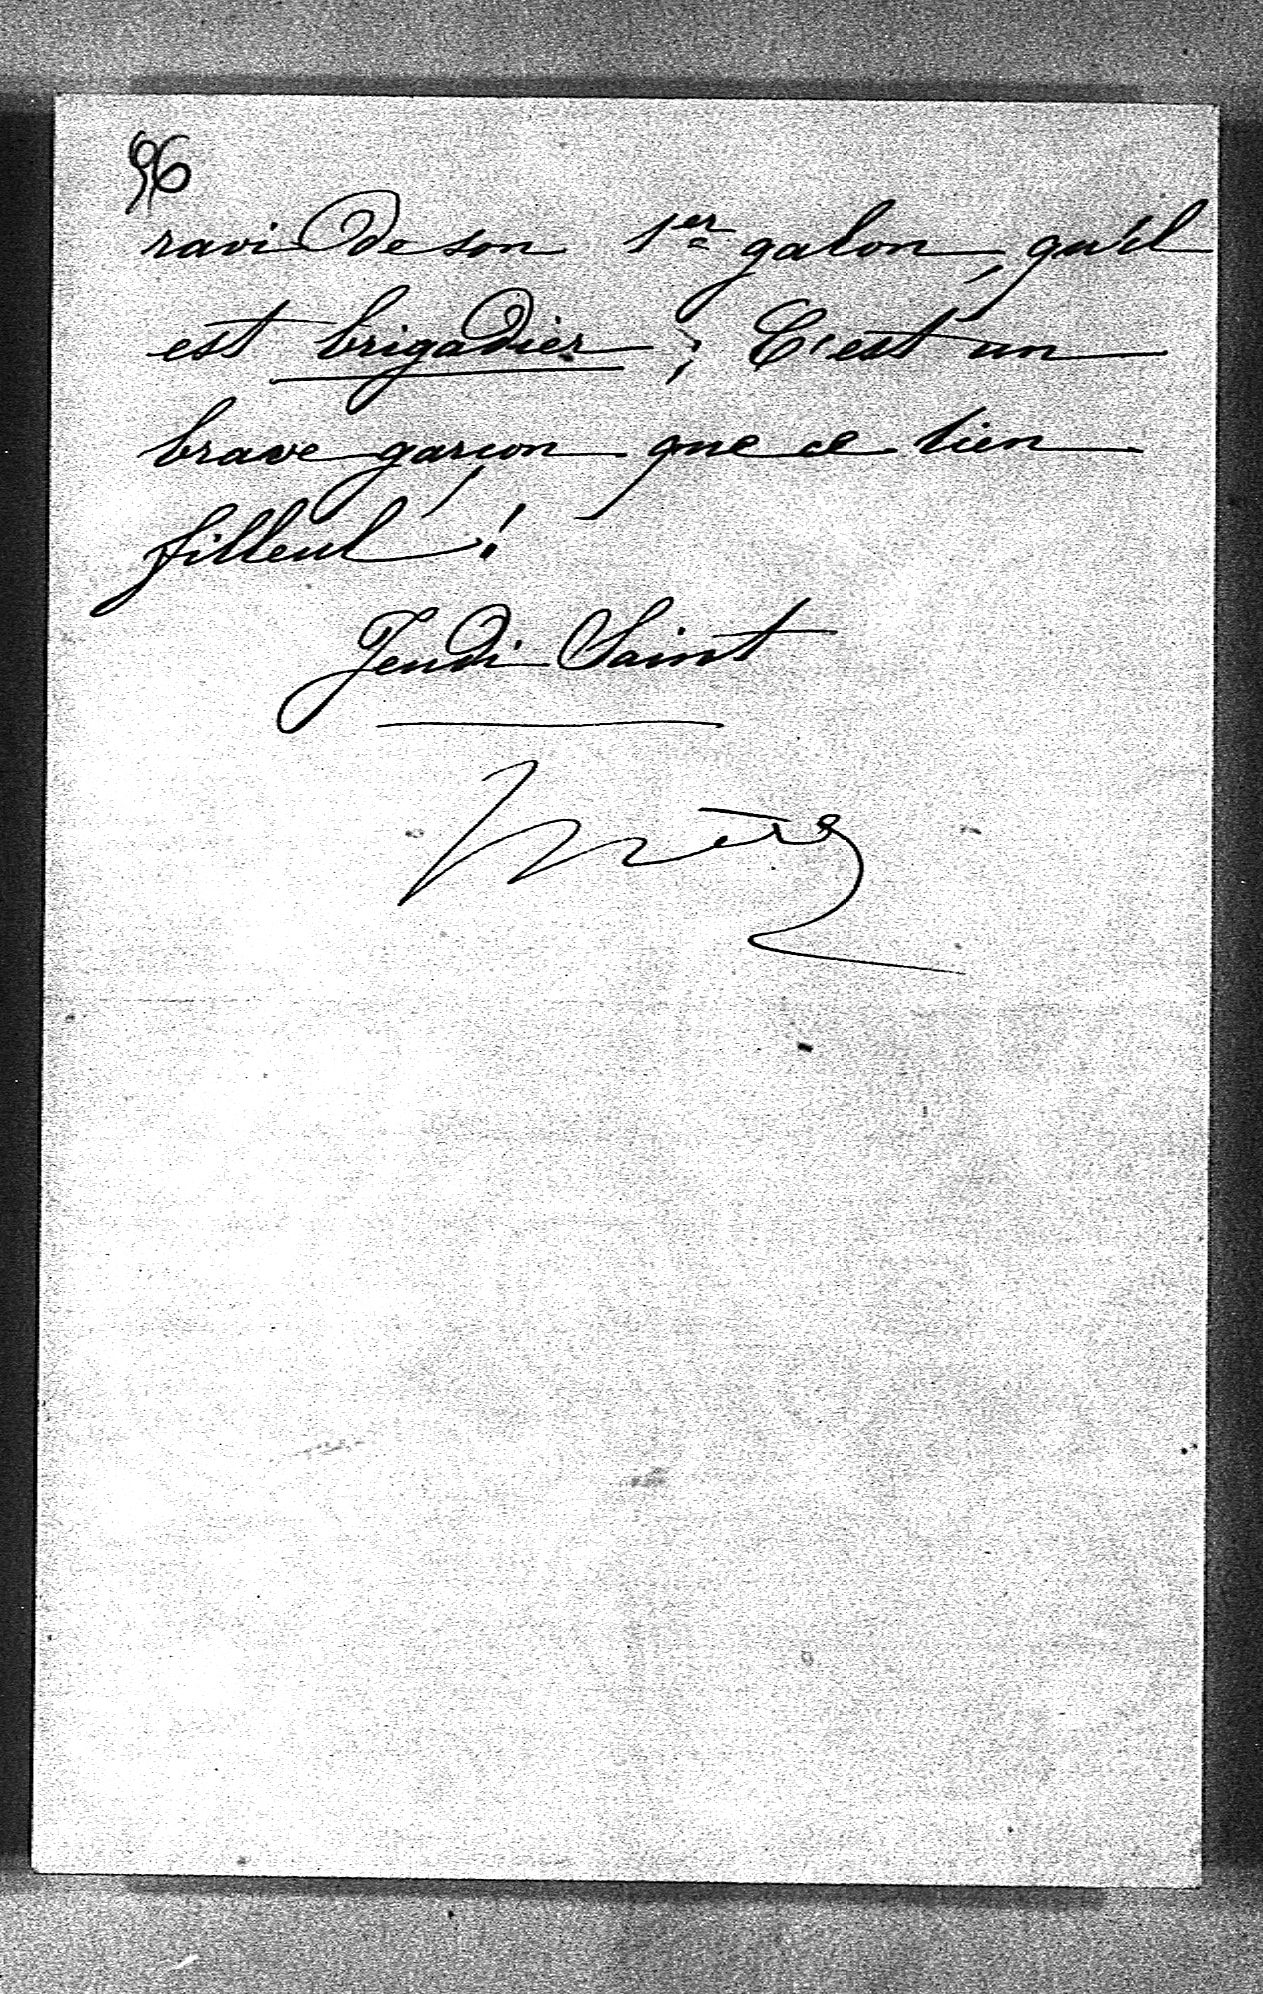 96
ravi de son 1er galon, qu'il
est brigadier ; C'est un
brave garçon que ce tien
filleul !
Jeudi Saint